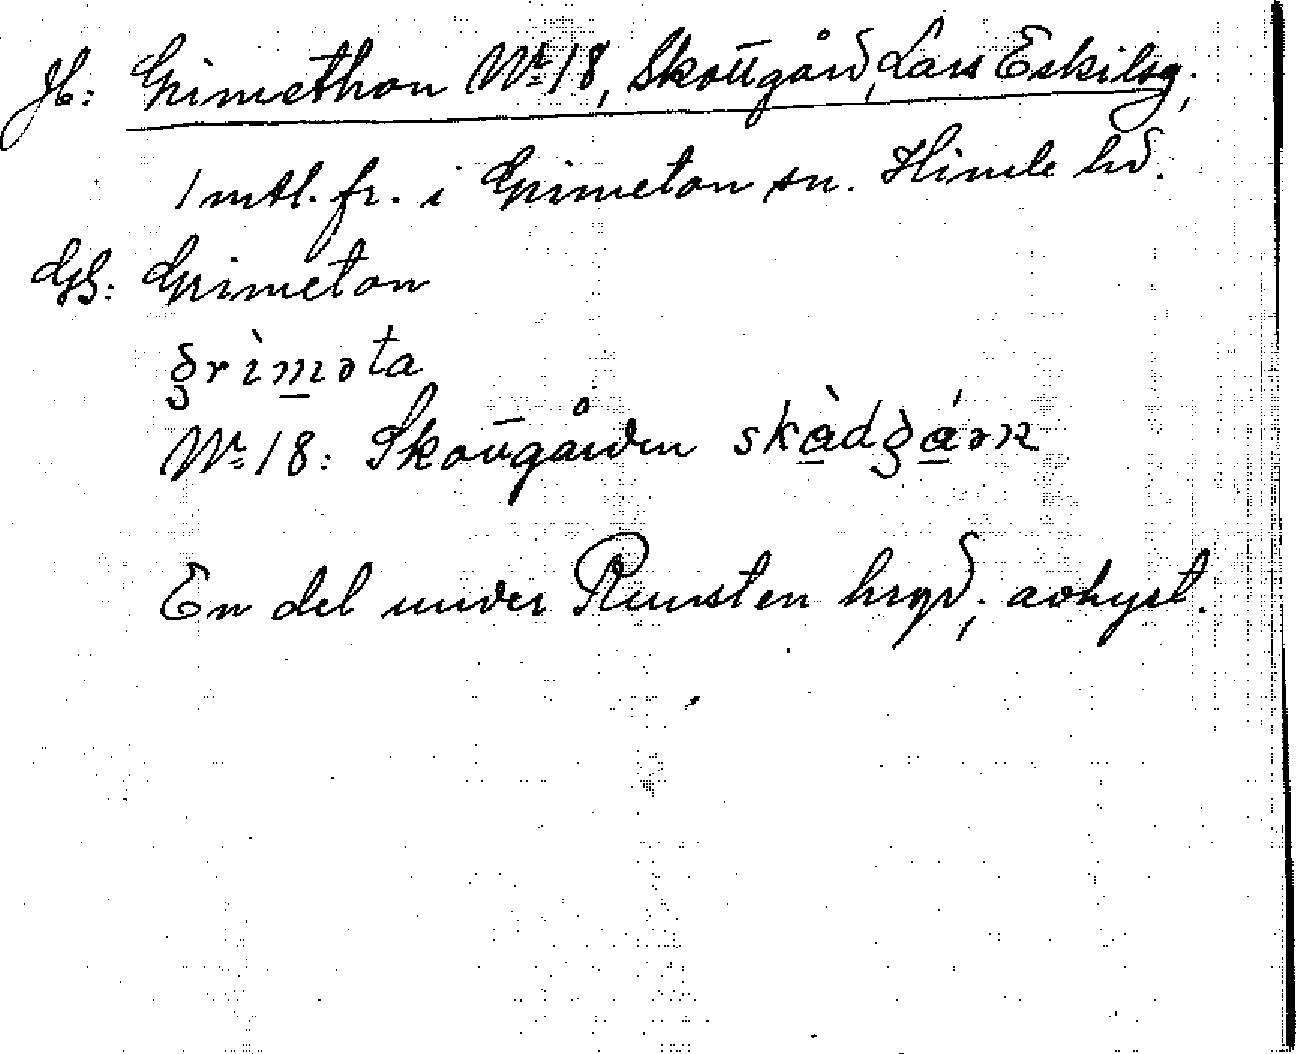 Jb: Grimethon Nr 18, Skottgård, Lars Eskilsg;
1 mtl. fr. i Grimeton sn. Himle hd.
GS: Grimeton
grìməta
Nr 18: Skottgården skàdgáɘn
En del under Runsten hryd; avhyst.